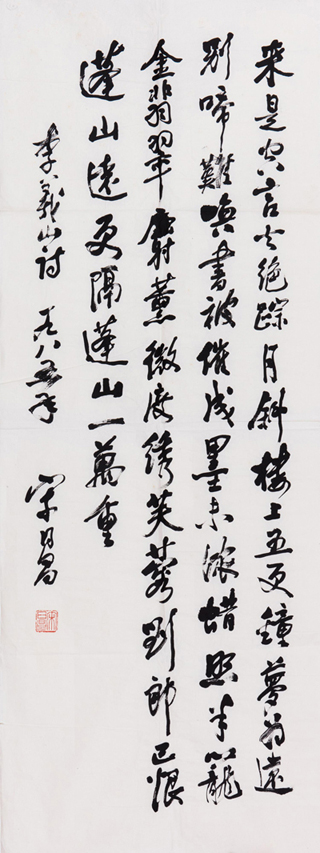 来是空言去绝踪月斜楼上五更鐘夢为遠
别啼難唤書被催成墨未浓蜡照半籠
金翡翠麝薰微度绣芙蓉劉郎已恨
蓬山遠更隔蓬山一萬重
李義山诗 一九八五年 宋日昌